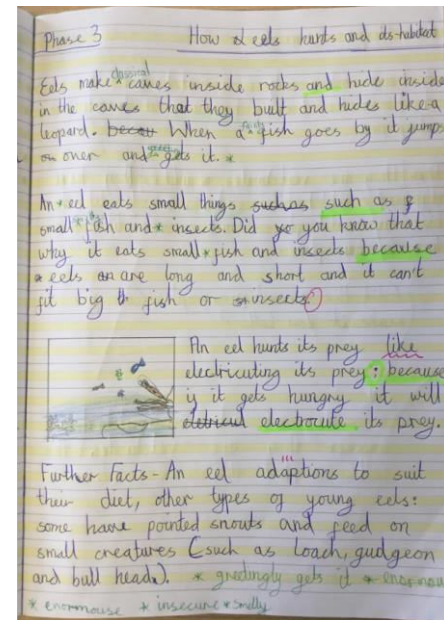 Phase 3 How eels hunts and its habitat
Eels make classical caves inside rocks and hide inside
in the caves that they built and hides like a
leopard. When a fish goes by it jumps
on over and gets it. *
An * eel eats small things suchas such as
small fish and * insects. Did you know that
why it eats small * fish and insects because
* eels are long and short and it can't
fit big fish or insects.
An eel hunts its prey like
electricuting its prey : because
if it gets hungry it will
electrocute its prey.
Further Facts - An eel adaptions to suit
their diet, other types of young eels:
some have pointed snouts and feed on
small creatures (such as Loach, gudgeon
and bull head). * greedingly gets it * enormou
* enormouse * insecure * smelly